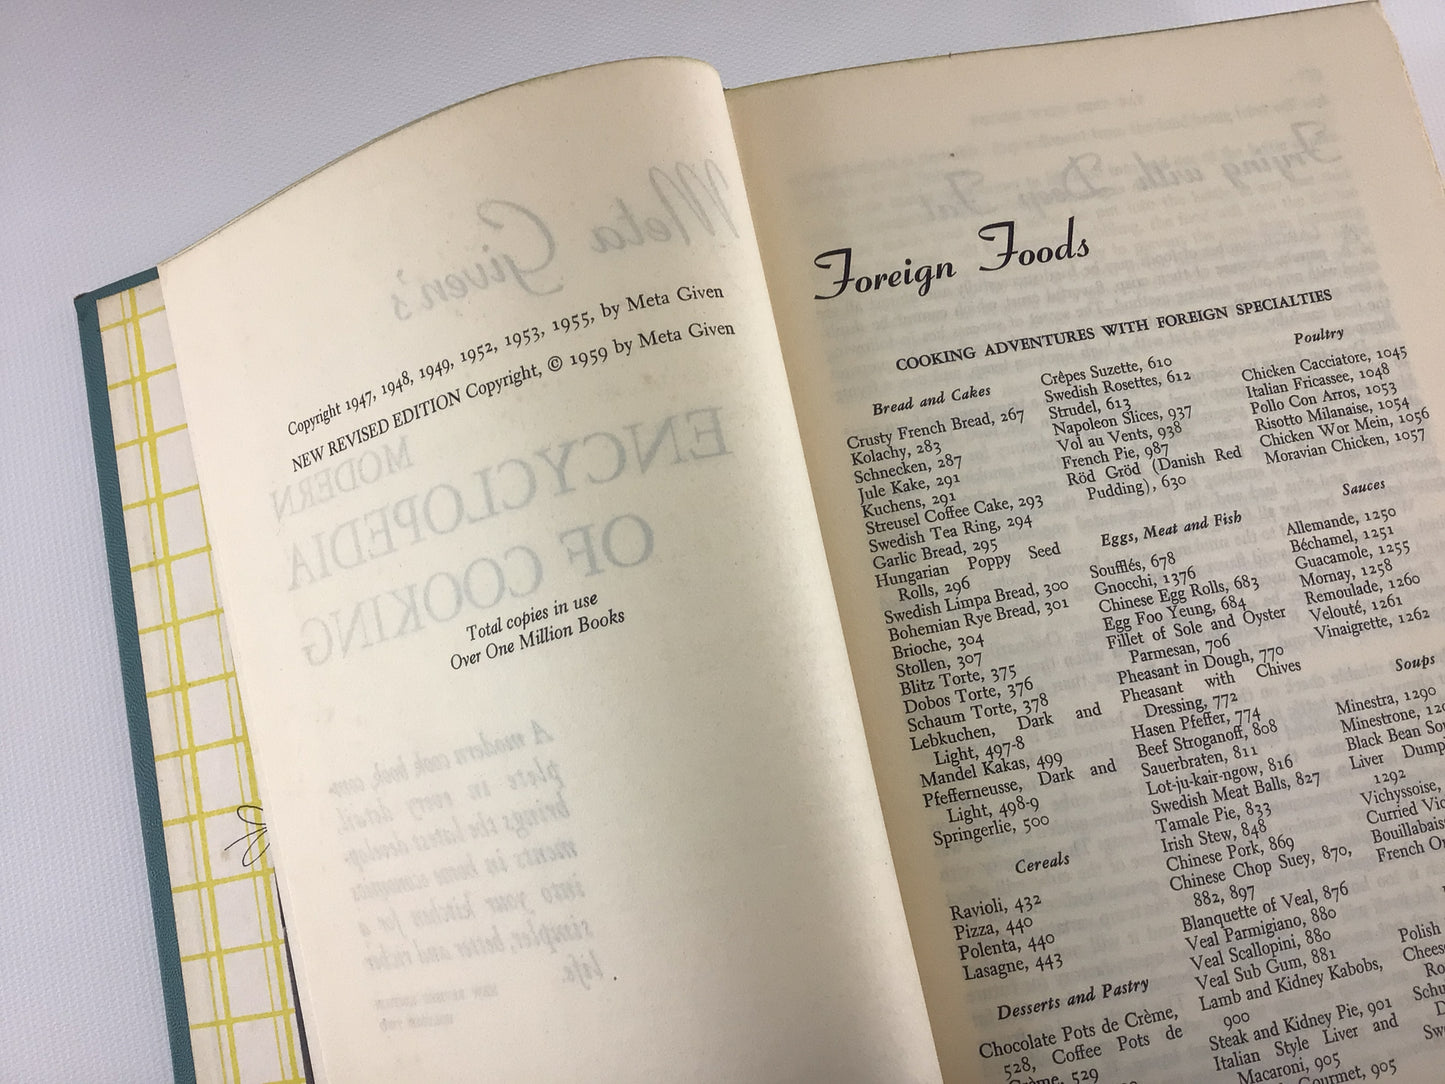 Copyright 1947, 1948, 1949, 1952, 1953, 1955, by Meta Given
NEW REVISED EDITION Copyright, © 1959 by Meta Given
Total copies in use
Over One Million Books
Meta Given's
MODERN
ENCYCLOPEDIA
OF COOKING
A modern cook book com-
plete in every detail,
brings the latest develop-
ments in home economics
into your kitchen for a
simpler, better and richer
life.
Foreign Foods
COOKING ADVENTURES WITH FOREIGN SPECIALTIES
Bread and Cakes
Crusty French Bread, 267
Kolachy, 283
Schnecken, 287
Jule Kake, 291
Kuchens, 291
Streusel Coffee Cake, 293
Swedish Tea Ring, 294
Garlic Bread, 295
Hungarian Poppy Seed
Rolls, 296
Swedish Limpa Bread, 300
Bohemian Rye Bread, 301
Brioche, 304
Stollen, 307
Blitz Torte, 375
Dobos Torte, 376
Schaum Torte, 378
Lebkuchen, Dark and
Light, 497-8
Mandel Kakas, 499
Pfefferneusse, Dark and
Light, 498-9
Springerlie, 500
Cereals
Ravioli, 432
Pizza, 440
Polenta, 440
Lasagne, 443
Desserts and Pastry
Chocolate Pots de Crème,
528, Coffee Pots de
Crème, 529
Crêpes Suzette, 610
Swedish Rosettes, 612
Strudel, 613
Napoleon Slices, 937
Vol au Vents, 938
French Pie, 987
Röd Gröd (Danish Red
Pudding), 630
Eggs, Meat and Fish
Soufflés, 678
Gnocchi, 1376
Chinese Egg Rolls, 683
Egg Foo Yeung, 684
Fillet of Sole and Oyster
Parmesan, 706
Pheasant in Dough, 770
Pheasant with Chives
Dressing, 772
Hasen Pfeffer, 774
Beef Stroganoff, 808
Sauerbraten, 811
Lot-ju-kair-ngow, 816
Swedish Meat Balls, 827
Tamale Pie, 833
Irish Stew, 848
Chinese Pork, 869
Chinese Chop Suey, 870,
882, 897
Blanquette of Veal, 876
Veal Parmigiano, 880
Veal Scallopini, 880
Veal Sub Gum, 881
Lamb and Kidney Kabobs,
900
Steak and Kidney Pie, 901
Italian Style Liver and
Macaroni, 905
Gourmet, 905
Poultry
Chicken Cacciatore, 1045
Italian Fricassee, 1048
Pollo Con Arros, 1053
Risotto Milanaise, 1054
Chicken Wor Mein, 1056
Moravian Chicken, 1057
Sauces
Allemande, 1250
Béchamel, 1251
Guacamole, 1255
Mornay, 1258
Remoulade, 1260
Velouté, 1261
Vinaigrette, 1262
Soups
Minestra, 1290
Minestrone,
Black Bean
Liver
1292
Vichyssoise,
Curried
French
Polish